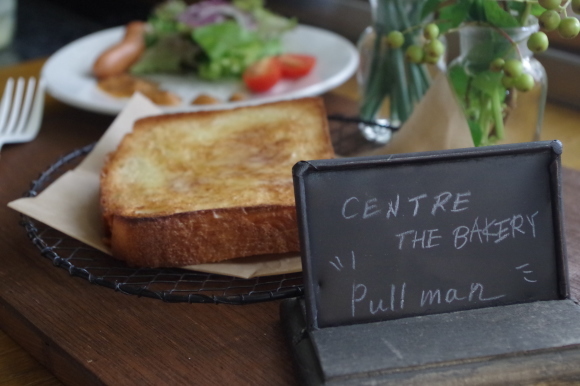 CENTRE
THE BAKERY
Pull man